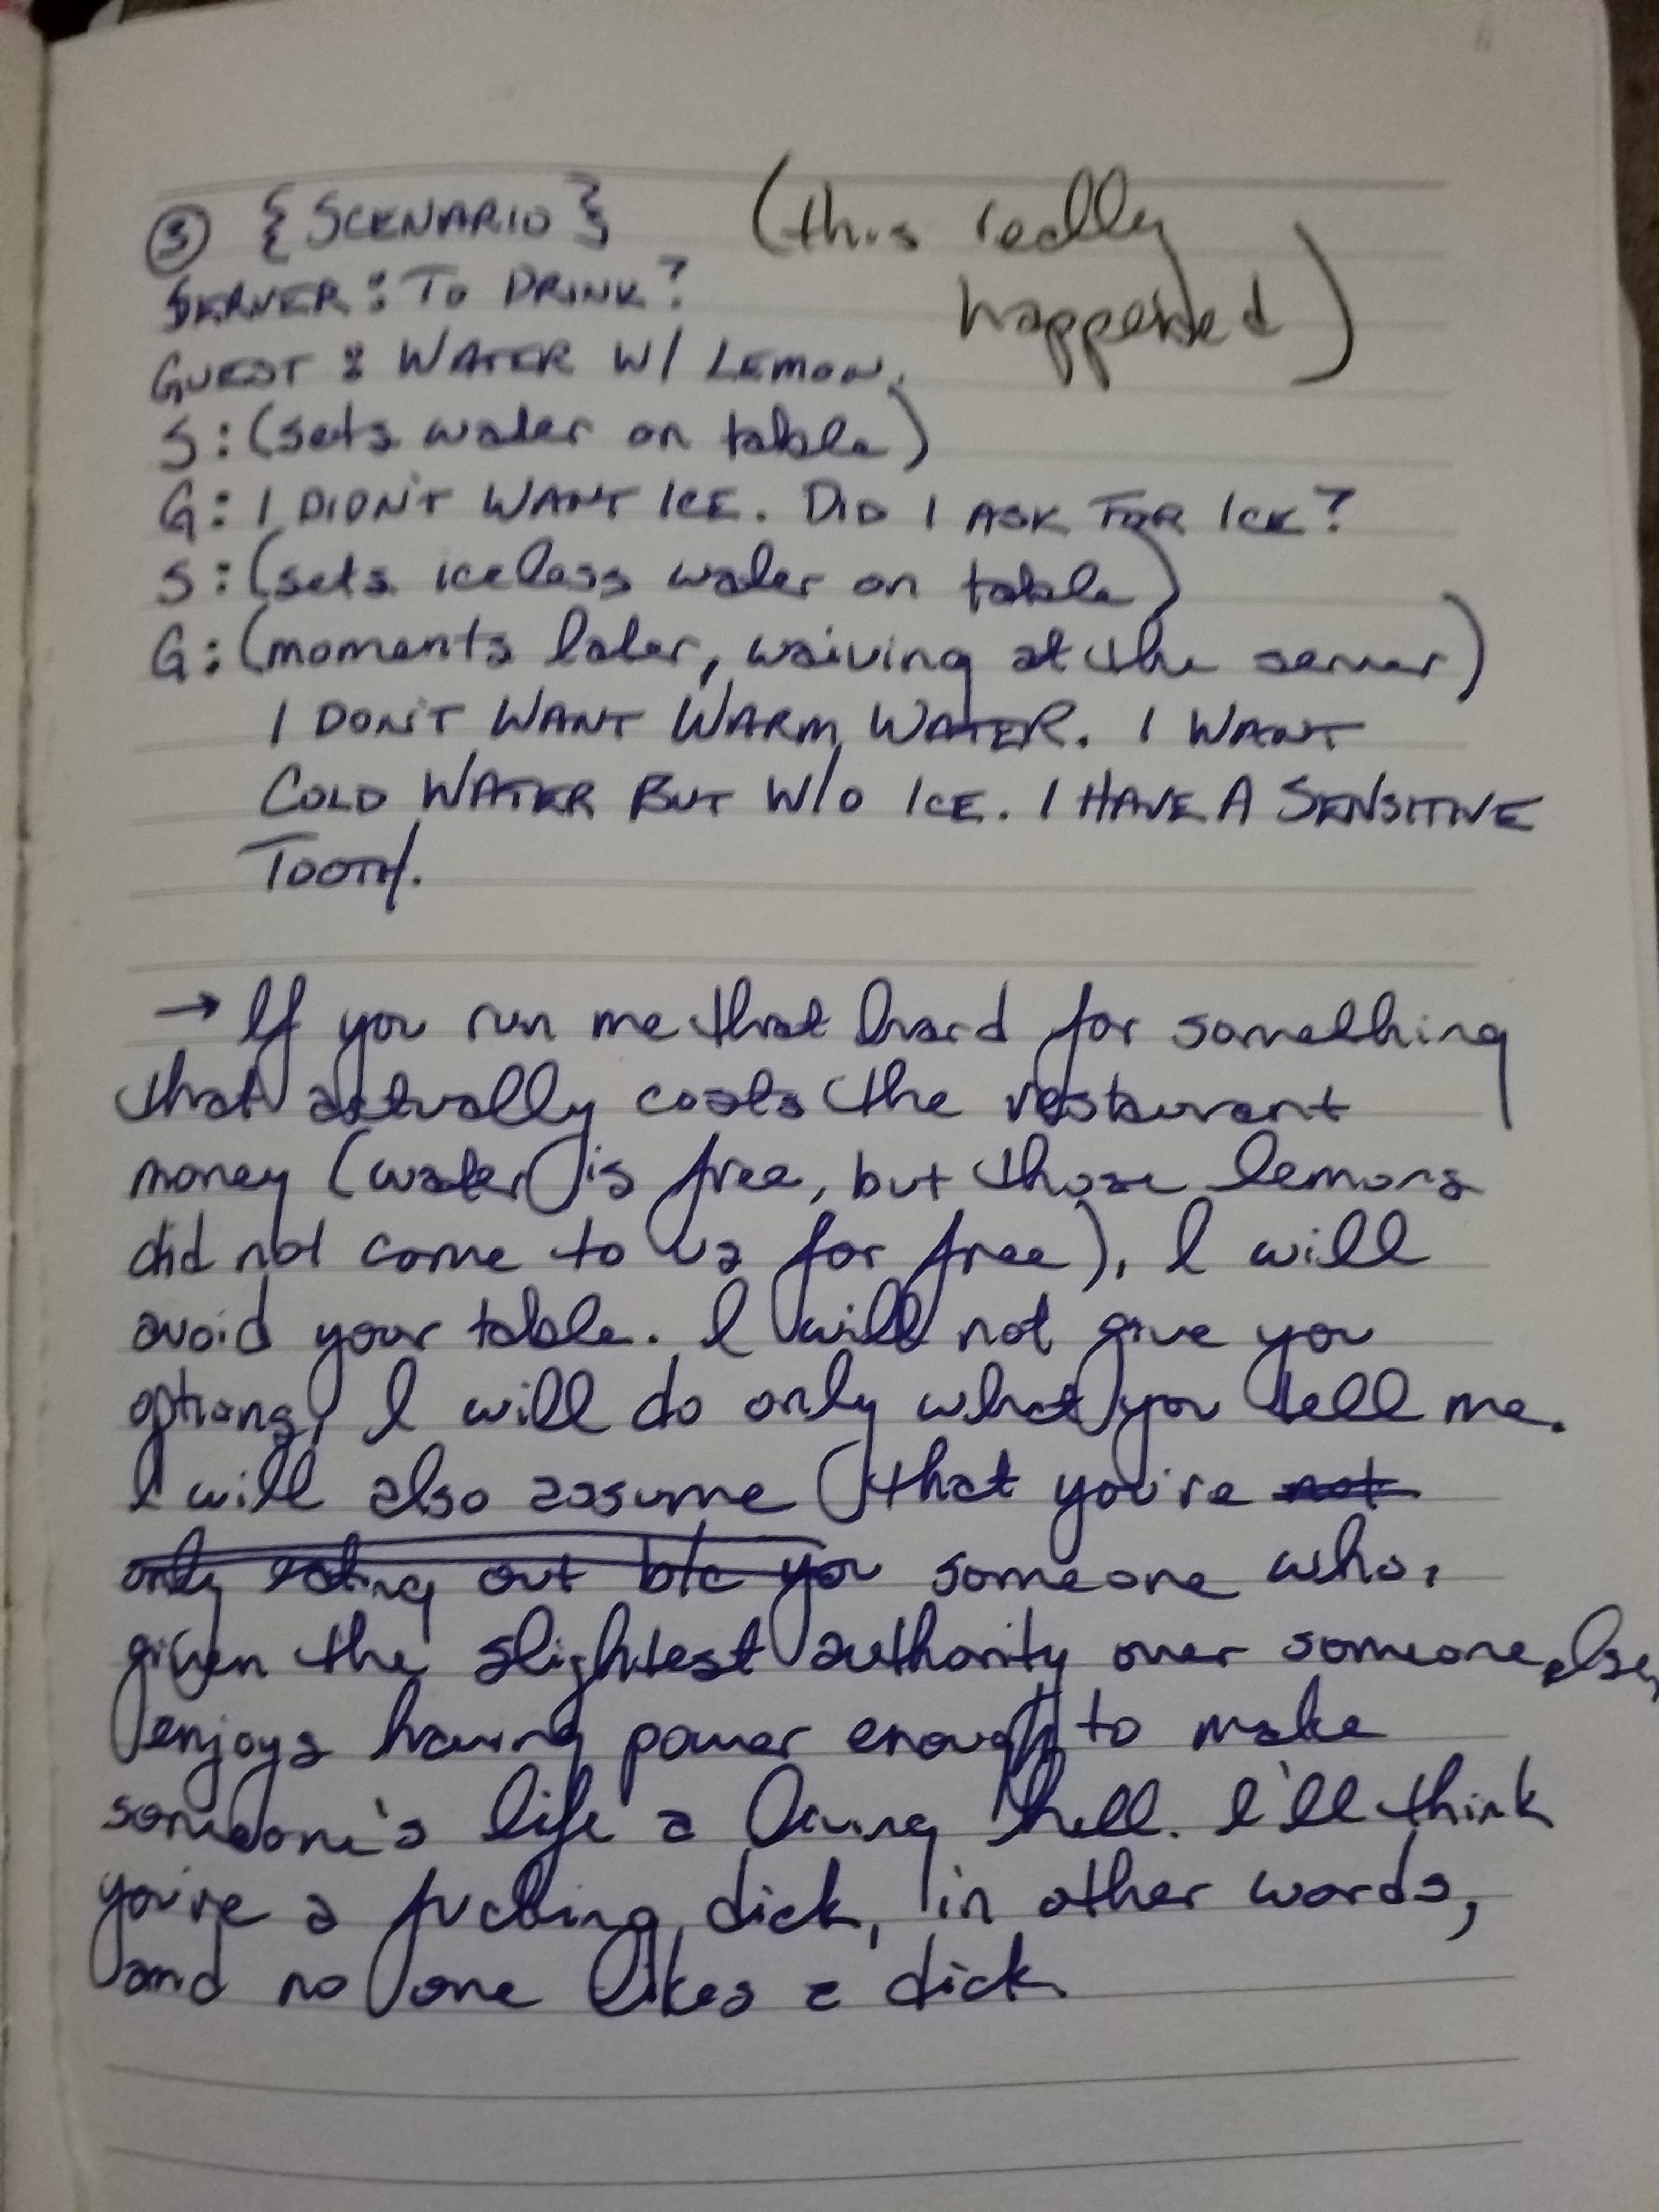 ③ {SCENARIO} (this really
happened)
SERVER: TO DRINK?
GUEST: WATER W/ LEMON.
S: (sets water on table)
G: I DIDN'T WANT ICE. DID I ASK FOR ICE?
S: (sets iceless water on table)
G: (moments later, waiving at the server)
I DON'T WANT WARM WATER. I WANT
COLD WATER BUT W/O ICE. I HAVE A SENSITIVE
TOOTH.
→ If you run me that hard for something
that actually costs the restaurant
money (water is free, but those lemons
did not come to us for free), I will
avoid your table. I will not give you
options, I will do only what you tell me.
I will also assume that you're not
only eating out b/c you someone who,
given the slightest authority over someone else,
enjoys having power enough to make
someone's life a living hell. I'll think
you're a fucking dick, in other words,
and no one likes a dick